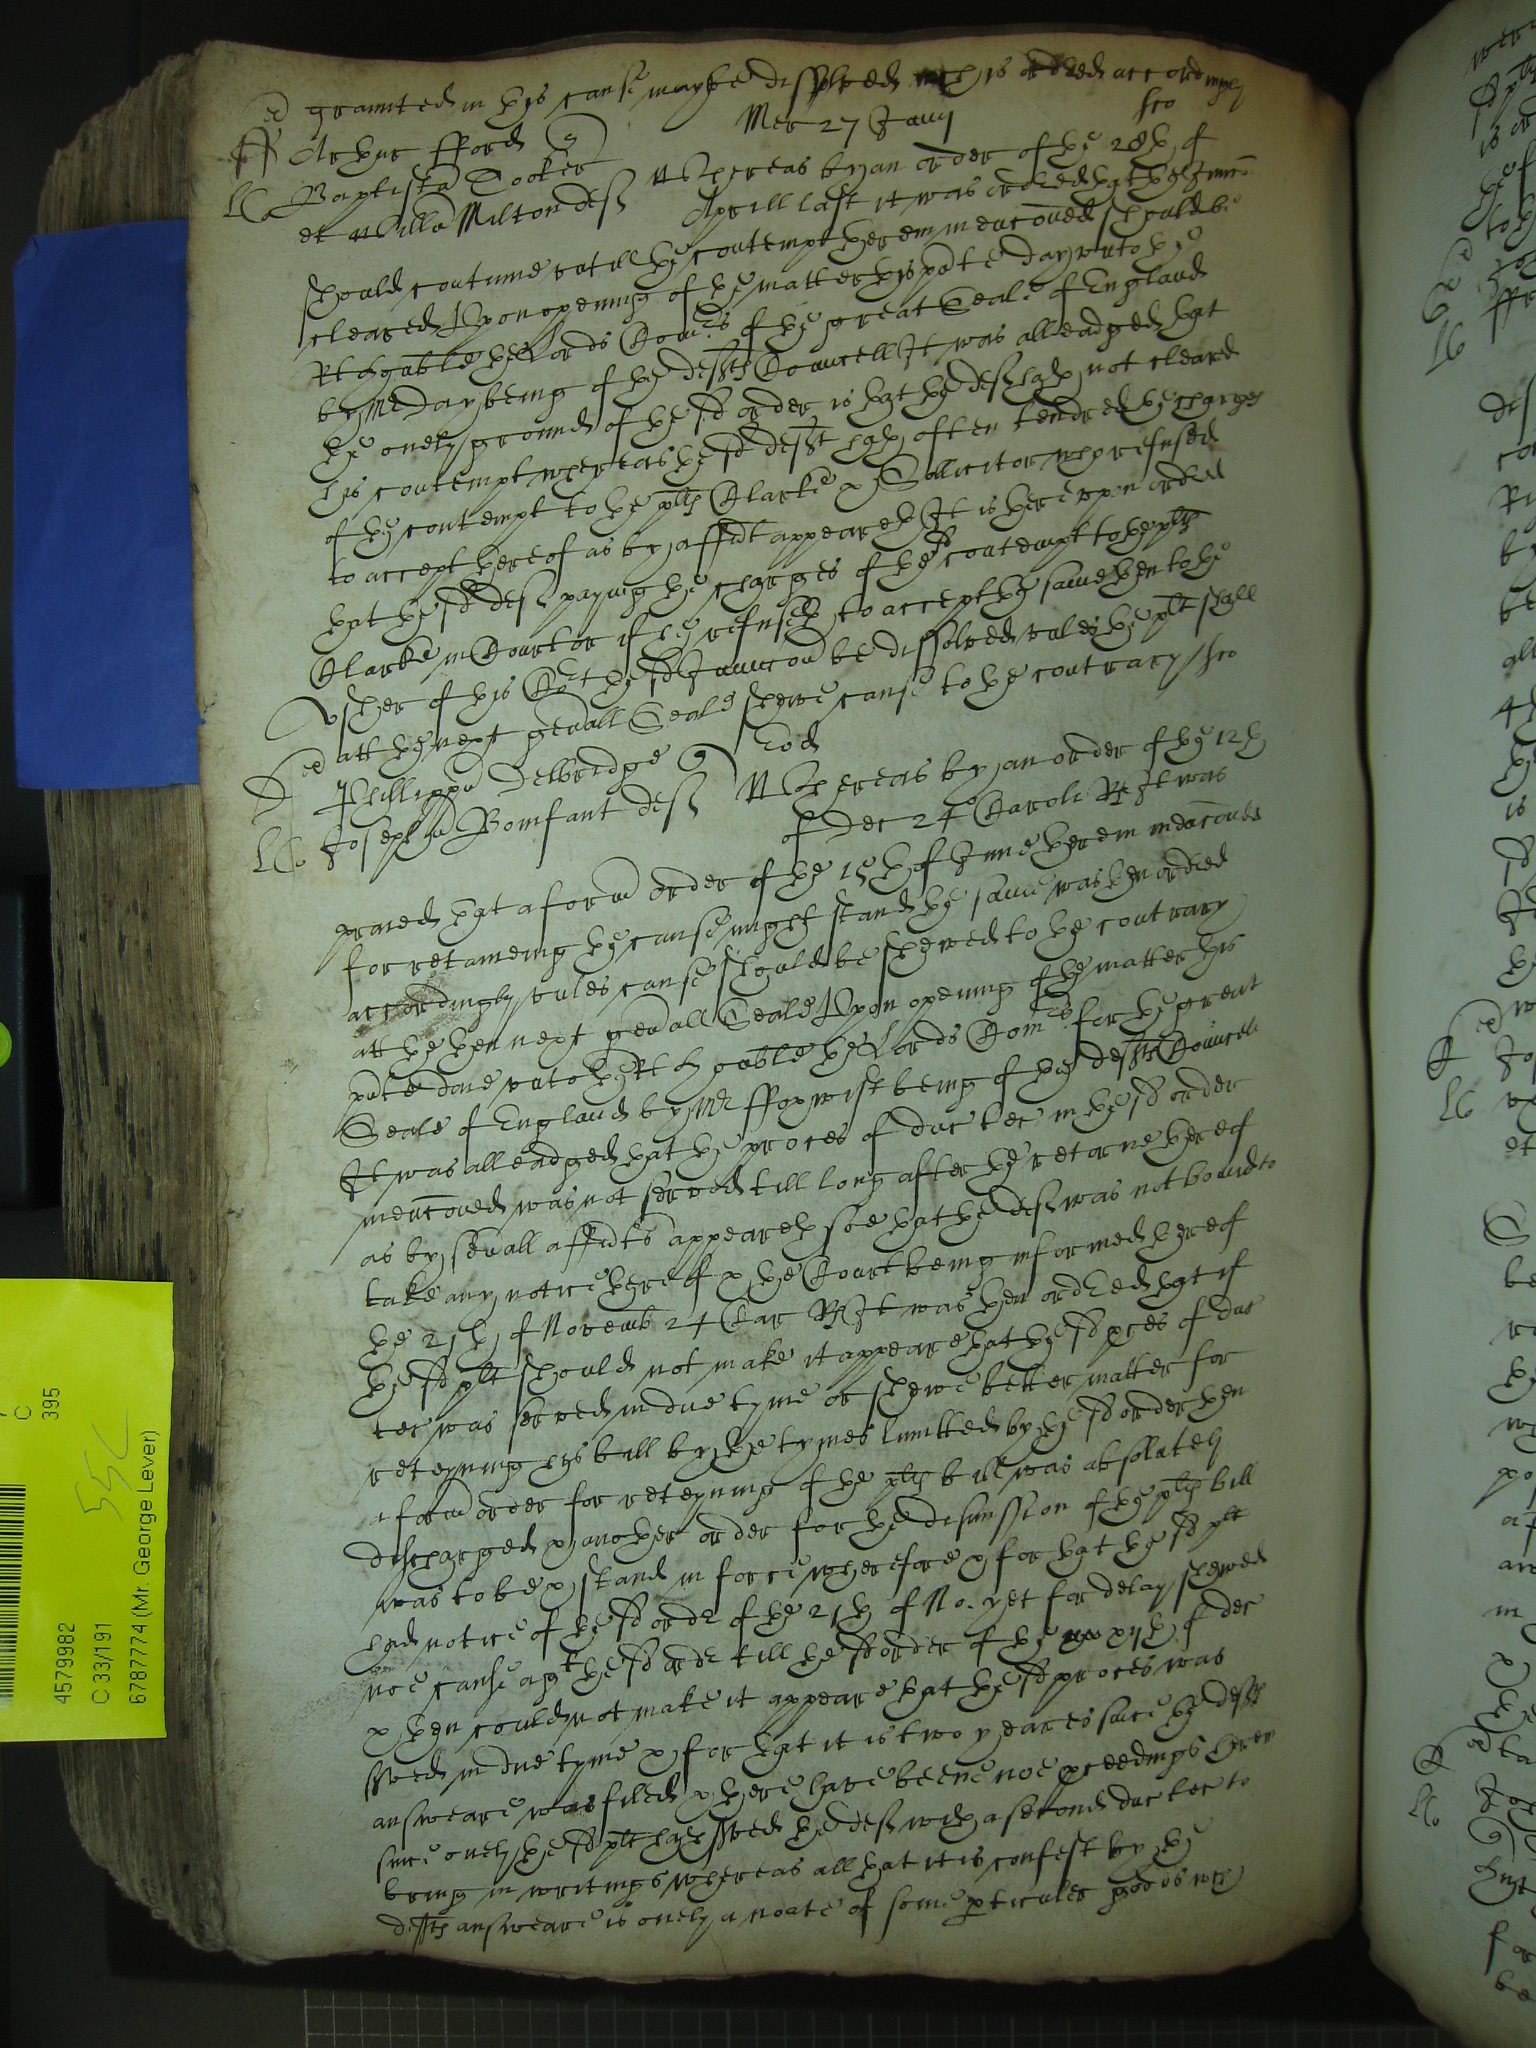 graunted in this cause maybe dissolved wch is ordred accordingly
Mer 27 Jauij
hro
Arthur fford
Baptista Tooker
et Willm Milton deft
Whereas by an order of the 28th of
Aprill last it was ordred that the Iniuncc̃on
should continue untill the contempt therein menc̃oned should be
cleared Upon opening of the matter this p̃nte day unto the
Rt honable the Lords Com:rs of the great Seale of England
by Mr Day being of the defts Councell It was alleadged that
the onely ground of the sd order is that the deft hath not cleard
his contempt whereas the sd deft hath often tendred the charges
of the contempt to the plts Clarke & Sollicitor wch refused
to accept thereof as by affidt appeareth It is thereupon ordred
that the sd deft paying the charges of the sd contempt to the plts
Clarke in Court or if he refuseth to accept the same then to the
Usher of this Cort the sd Iniunccon be dissolved unles the plt shall
att the next gen̄all Seale shewe cause to the contrary hro
Eod
Phillippus Delbridge
Josephus Bomfant deft
Whereas by an order of the 12th
of Dec 24o Caroli Rs It was
praied that a form̄ order of the 15th of June therein menc̃oned
for retaineing the cause might stand the same was then ordred
accordingly unles cause should be shewed to the contrary
att the then next gen̄all Seale Upon opening of the matter this
p̃nte done unto the Rt honable the Lords Comrs for the great
Seale of England by Mr ffoxwist being of the defts Councell
It was alleadged that the proces of duc tec in the sd order
menc̃oned was not served till long after the retorne thereof
as by sevall affidts appeareth soe that the deft was not bound to
take any notice thereof & the Court being informed thereof
the 21th of Novemb 24 Car Rs It was then ordred that if
the sd plt should not make it appeare that the sd pces of duc
tec was served in due tyme or shewe better matter for
reteyning his bill by the tymes limitted by the sd order then
a form̄ order for reteyning of the plts bill was absolutely
discharged & another order for the dismission of the plts bill
was to be & stand in force wherefore & for that the sd plt
had notice of the sd ordr of the 21th of No. yet for delay shewed
noe cause agt the sd ordr till the sd order of the xijth of dec
& then could not make it appeare that the sd proces was
sved in due tyme & for that it is two yeares since the defts
answeare was filed & there have beene noe pceedings therein
since onely the sd plt hath sved the deft with a second duc tec to
bring in writings whereas all that it is confest by the
defts answeare is onely a noate of some pticuler goods wch
4579982
C 33/191
6787774 (Mr. George Lever)
C
395
55C